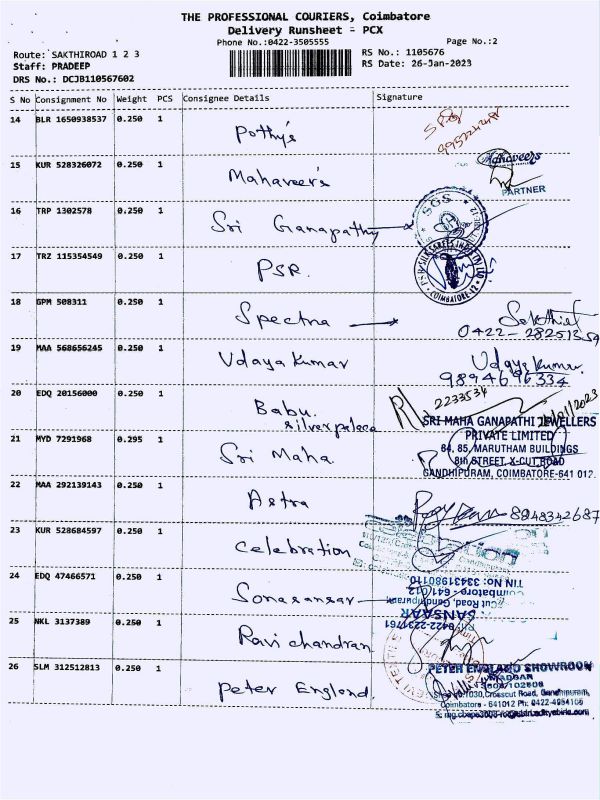 THE PROFESSIONAL COURIERS, Coimbatore
Delivery Runsheet - PCX
Phone No.:0422-3505555
Page No.:2
Route: SAKTHIROAD 1 2 3
RS No.: 1105676
Staff: PRADEEP
RS Date: 26-Jan-2023
DRS No.: DCJB110567602
S No Consignment No Weight PCS Consignee Details Signature
14 BLR 1650938537 0.250 1 Pothy's
15 KUR 528326072 0.250 1 Mahaveer's
Mahaveers
PARTNER
16 TRP 1302578 0.250 1 Sri Ganapathy
SGS
17 TRZ 115354549 0.250 1 PSR.
COIMBATORE-12
18 GPM 508311 0.250 1 Spectra
Sakthivel
0422-
19 MAA 568656245 0.250 1 Udaya Kumar
Udaya Kumar
9894696334
20 EDQ 20156000 0.250 1 Babu. silver palace
2233534
21 MYD 7291968 0.295 1 Sri Maha
SRI MAHA GANAPATHI JEWELLERS
PRIVATE LIMITED
84, 85, MARUTHAM BUILDINGS
8th STREET, X-CUT ROAD
GANDHIPURAM, COIMBATORE-641 012.
22 MAA 292139143 0.250 1 Astra
8848342687
23 KUR 528684597 0.250 1 Celebration
24 EDQ 47466571 0.250 1 Sonasansar
TIN No: 33431980110
Coimbatore - 641 012
Cut Road, Gandhipuram
SANSAAR
0422-2231761
25 NKL 3137389 0.250 1 Ravi chandran
26 SLM 312512813 0.250 1 Peter Englond
PETER ENGLAND SHOWROOM
Crosscut Road, Gandhipuram,
Coimbatore - 641012 Ph: 0422-4954106